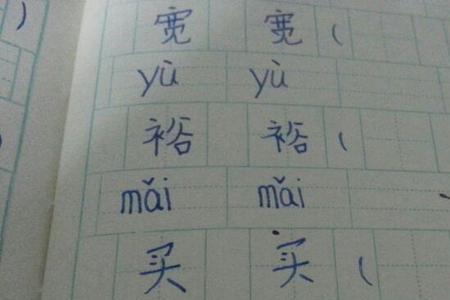 宽 宽 (
yù yù
裕 裕 (
mǎi mǎi
买 买 (
)